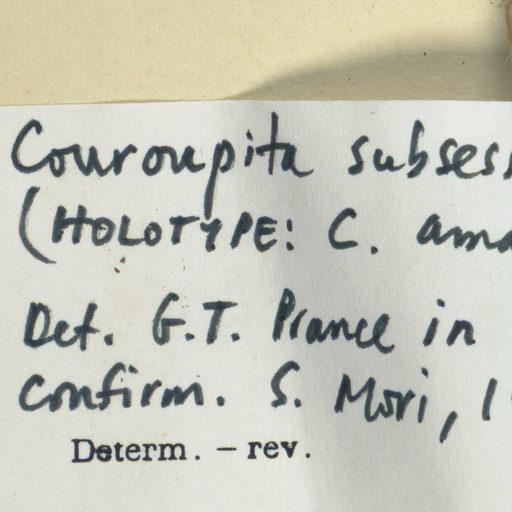 Couroupita subsess
(HOLOTYPE: C. ama
Det. G.T. Prance in
Confirm. S. Mori, 1
Determ. – rev.